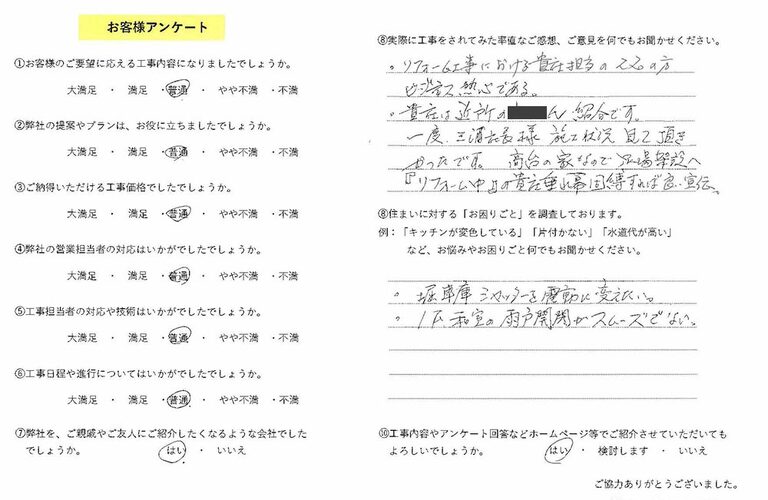 お客様アンケート
①お客様のご要望に応える工事内容になりましたでしょうか。
大満足 ・ 満足 ・ 普通 ・ やや不満 ・ 不満
②弊社の提案やプランは、お役に立ちましたでしょうか。
大満足 ・ 満足 ・ 普通 ・ やや不満 ・ 不満
③ご納得いただける工事価格でしたでしょうか。
大満足 ・ 満足 ・ 普通 ・ やや不満 ・ 不満
④弊社の営業担当者の対応はいかがでしたでしょうか。
大満足 ・ 満足 ・ 普通 ・ やや不満 ・ 不満
⑤工事担当者の対応や技術はいかがでしたでしょうか。
大満足 ・ 満足 ・ 普通 ・ やや不満 ・ 不満
⑥工事日程や進行についてはいかがでしたでしょうか。
大満足 ・ 満足 ・ 普通 ・ やや不満 ・ 不満
⑦弊社を、ご親戚やご友人にご紹介したくなるような会社でした
でしょうか。 はい ・ いいえ
⑧実際に工事をされてみた率直なご感想、ご意見を何でもお聞かせください。
・リフォーム工事における貴社担当の の方
熱心である。
・貴社は近所の ん 紹介です。
一度、 様 施工状況 見て頂き
たかったです。 高台の家なので 足場 へ
『リフォーム中』の貴社垂れ幕 すれば良い宣伝。
⑧住まいに対する「お困りごと」を調査しております。
例：「キッチンが変色している」「片付かない」「水道代が高い」
など、お悩みやお困りごと何でもお聞かせください。
・堀車庫シャッターを電動に変えたい。
・1F 和室の雨戸開閉がスムーズでない。
⑩工事内容やアンケート回答などホームページ等でご紹介させていただいても
よろしいでしょうか。 はい ・ 検討します ・ いいえ
ご協力ありがとうございました。